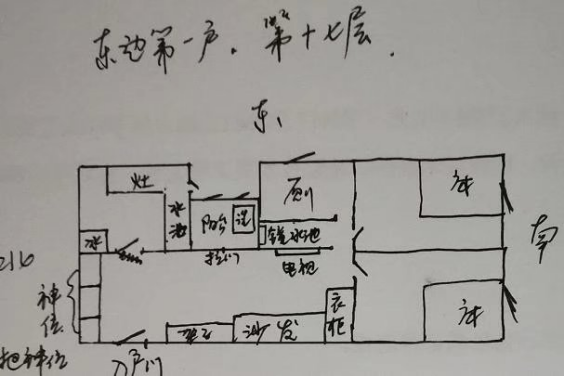 东边第一户. 第十七层.
东、
灶
厕
床
水池
阳台
洗
镜
水池
南
冰
拉门
电视
北
神位
衣柜
床
沙发
把神位
入户门